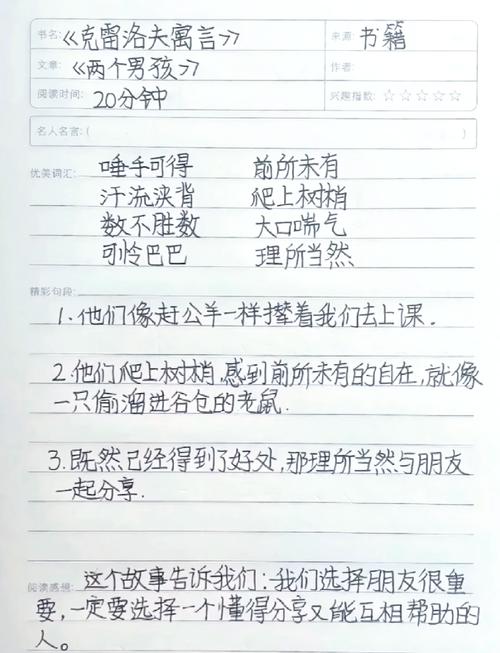 书名:《克雷洛夫寓言》 来源:书籍
文章:《两个男孩》 作者:
阅读时间:20分钟 兴趣指数:☆☆☆☆☆
名人名言:( )
优美词汇: 唾手可得 前所未有
汗流浃背 爬上树梢
数不胜数 大口喘气
可怜巴巴 理所当然
精彩句段:
1.他们像赶公羊一样撵着我们去上课.
2.他们爬上树梢,感到前所未有的自在,就像
一只偷溜进谷仓的老鼠.
3.既然已经得到了好处,那理所当然与朋友
一起分享.
阅读感想: 这个故事告诉我们:我们选择朋友很重
要,一定要选择一个懂得分享又能互相帮助的
人。